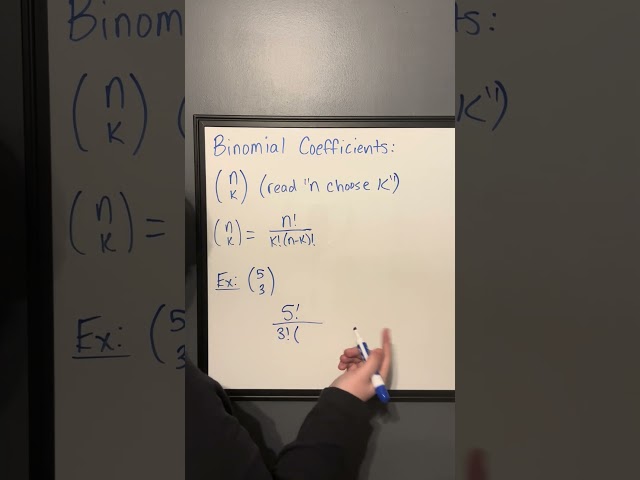 Binomial Coefficients:
(n k) (read "n choose k")
(n k) = n! / k!(n-k)!
Ex: (5 3)
5! / 3!(